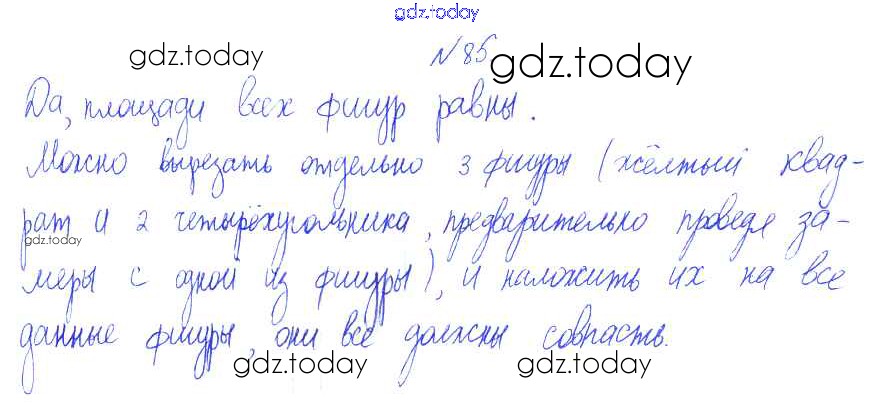 gdz.today
№85
gdz.today gdz.today
Да, площади всех фигур равны.
Можно вырезать отдельно 3 фигуры (жёлтый квад-
рат и 2 четырёхугольника, предварительно проведя за-
gdz.today
меры с одной из фигуры), и наложить их на все
данные фигуры, они все должны совпасть.
gdz.today gdz.today